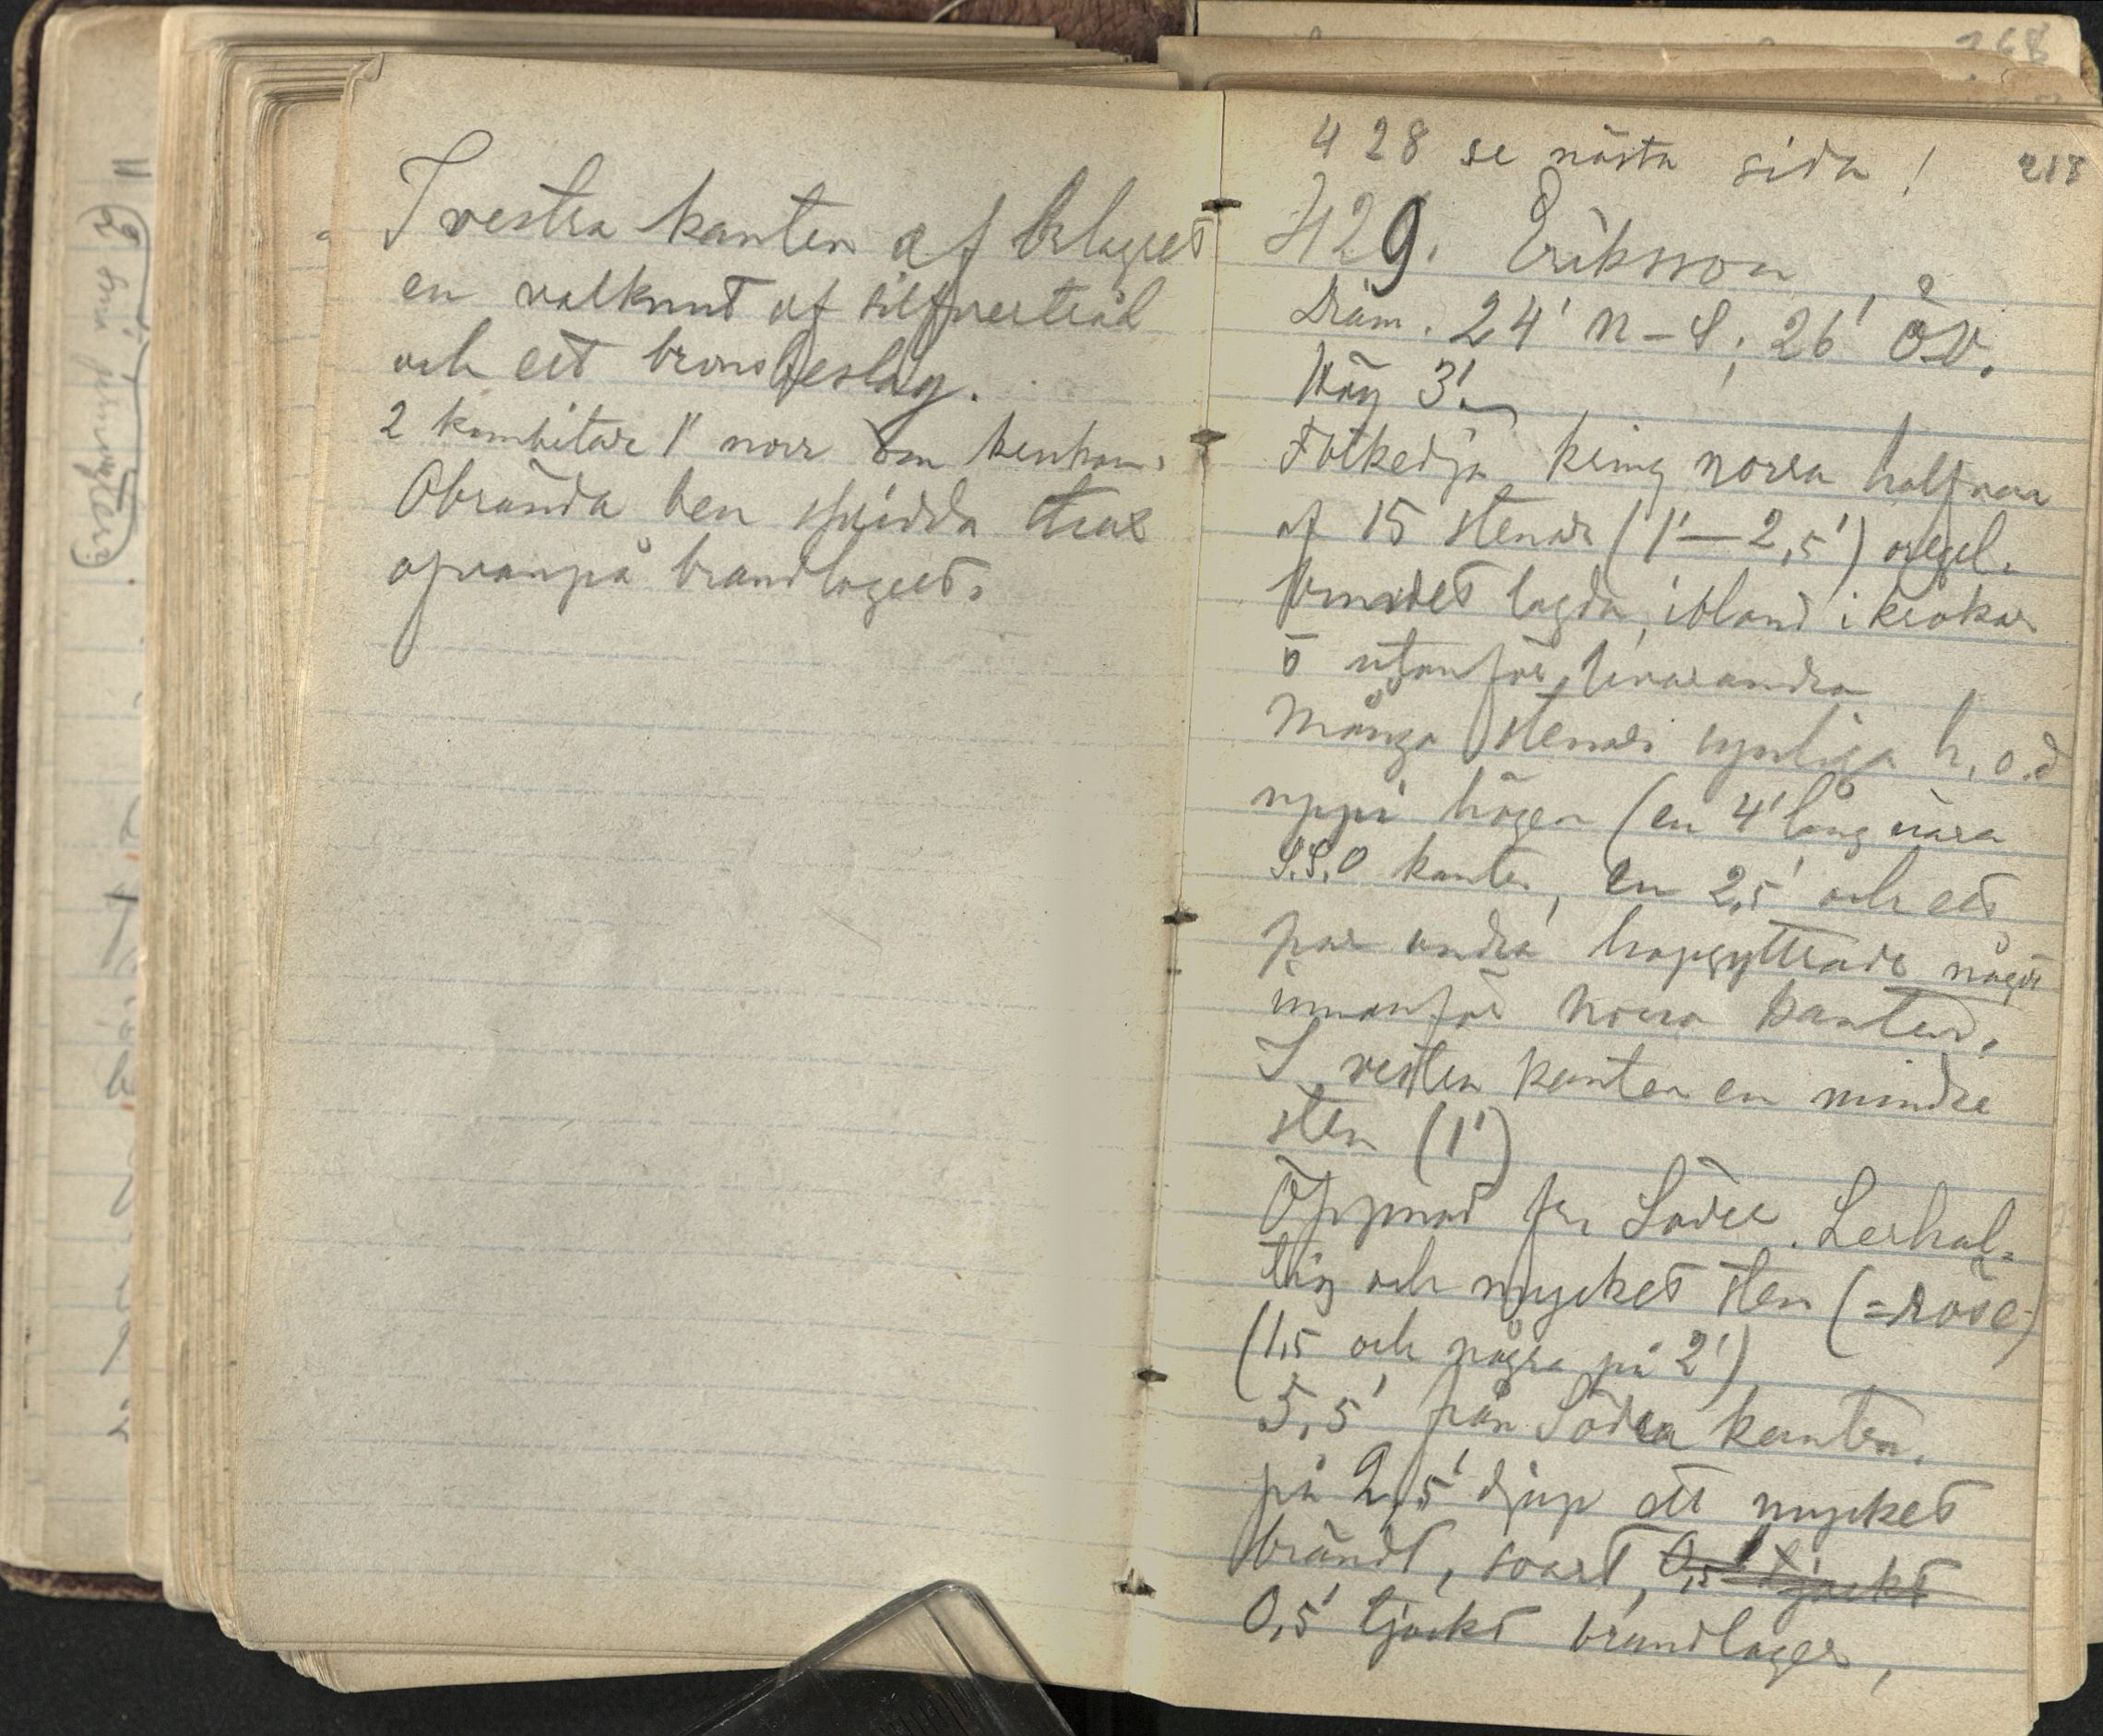 I vestra kanten af brlagret
en valknut af silfvertråd
och ett bronsbeslag.
2 kambitar 1' norr om benham.
Obrända ben spridda strax
ofvanpå brandlagret.
428 se nästa sida!
218
429. Eriksson
Diam. 24' n–S; 26' ÖV.
Hög 3'.
Fotkedja kring norra halfvan
af 15 stenar (1'–2,5') oregel-
bundet lagda, ibland i krokar
o utanför hvarandra
Många stenar synliga h. o. d
uppi högen (en 4' lång nära
S.S.O kanten, en 2,5' och ett
par andra hopgyttrade något
innanför norra kanten.
I vestra kanten en mindre
sten (1')
Öppnad fr. Söder. Lerhal-
tig och mycket sten (=röse)
(1,5 och några på 2')
5,5' från Södra kanten.
på 2,5' djup ett mycket
brändt, svart, 0,5' tjockt
0,5' tjockt brandlager,